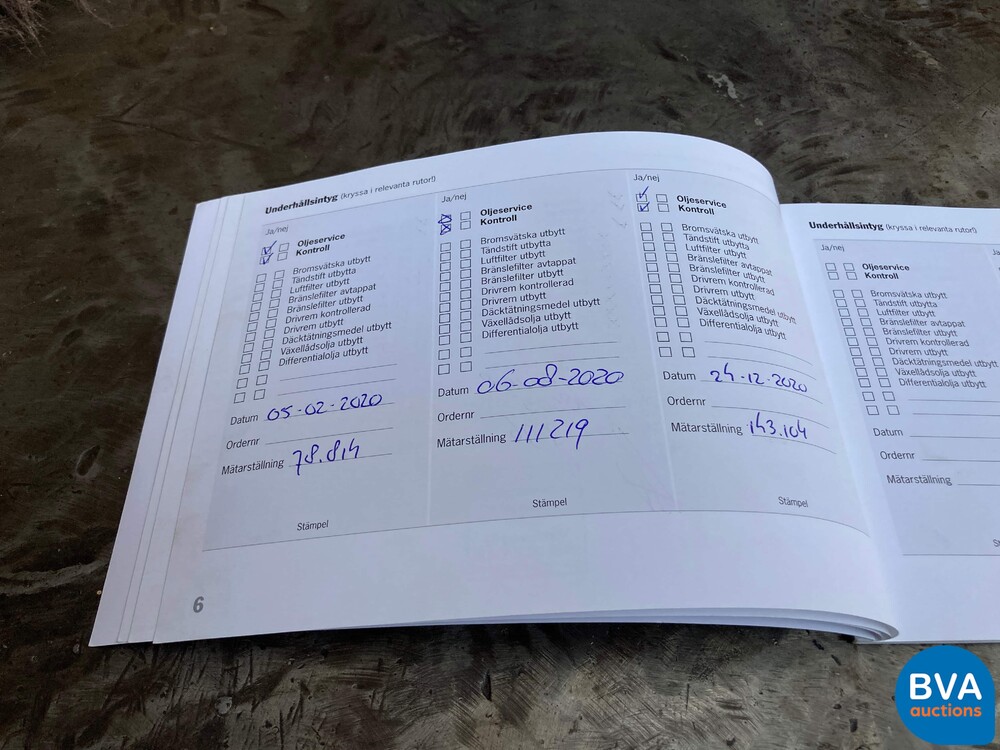 Underhållsintyg (kryssa i relevanta rutor!)
Ja/nej
Oljeservice
Kontroll
Bromsvätska utbytt
Tändstift utbytta
Luftfilter utbytt
Bränslefilter avtappat
Bränslefilter utbytt
Drivrem kontrollerad
Drivrem utbytt
Däcktätningsmedel utbytt
Växellådsolja utbytt
Differentialolja utbytt
Datum 05-02-2020
Ordernr
Mätarställning 78.814
Stämpel
Ja/nej
Oljeservice
Kontroll
Bromsvätska utbytt
Tändstift utbytta
Luftfilter utbytt
Bränslefilter avtappat
Bränslefilter utbytt
Drivrem kontrollerad
Drivrem utbytt
Däcktätningsmedel utbytt
Växellådsolja utbytt
Differentialolja utbytt
Datum 06-08-2020
Ordernr
Mätarställning 111219
Stämpel
Ja/nej
Oljeservice
Kontroll
Bromsvätska utbytt
Tändstift utbytta
Luftfilter utbytt
Bränslefilter avtappat
Bränslefilter utbytt
Drivrem kontrollerad
Drivrem utbytt
Däcktätningsmedel utbytt
Växellådsolja utbytt
Differentialolja utbytt
Datum 24-12-2020
Ordernr
Mätarställning 143.104
Stämpel
6
Underhållsintyg (kryssa i relevanta rutor!)
Ja/nej
Oljeservice
Kontroll
Bromsvätska utbytt
Tändstift utbytta
Luftfilter utbytt
Bränslefilter avtappat
Bränslefilter utbytt
Drivrem kontrollerad
Drivrem utbytt
Däcktätningsmedel utbytt
Växellådsolja utbytt
Differentialolja utbytt
Datum
Ordernr
Mätarställning
BVA
auctions